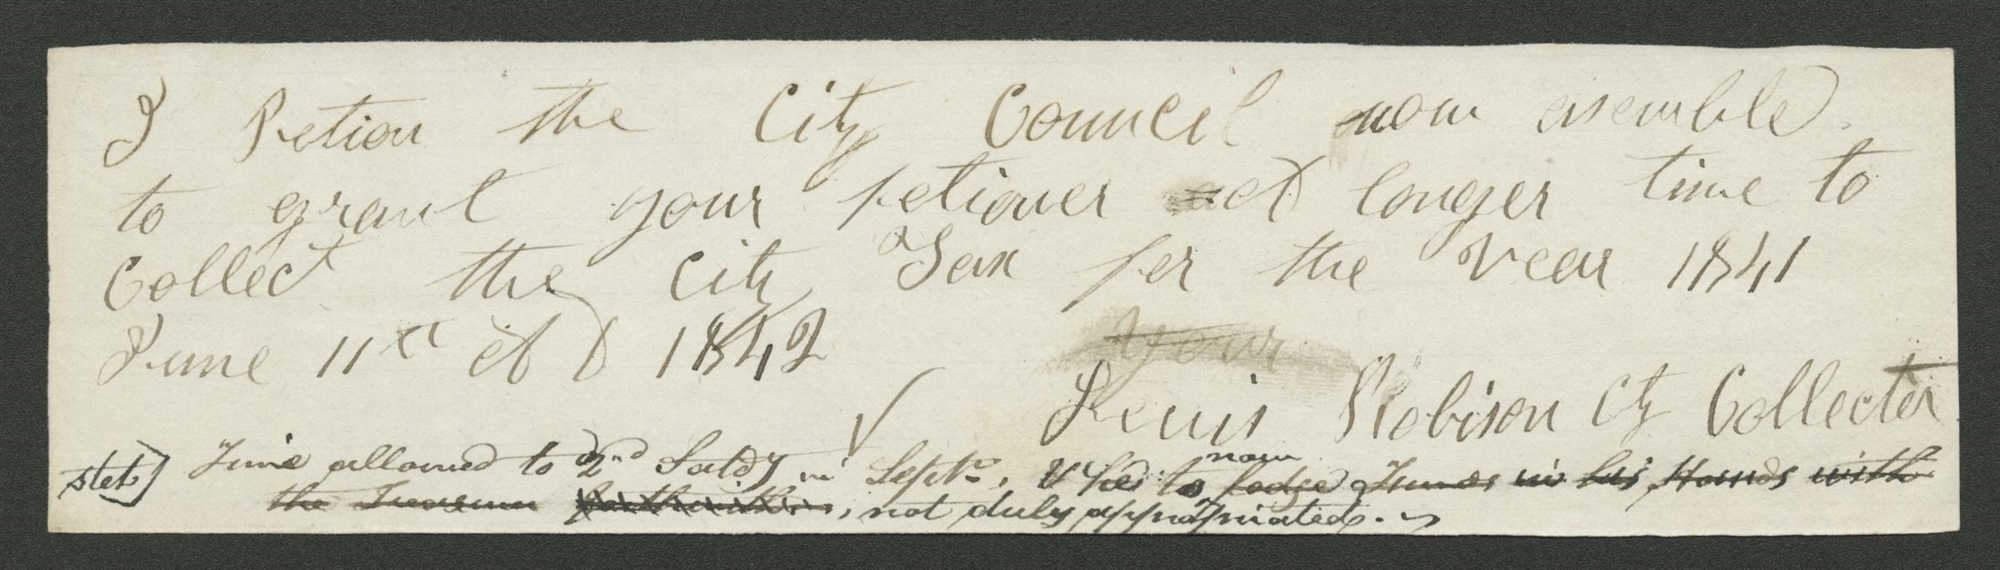 I Petion the City Council now asemble
to grant your petioner longer time to
Collect the City Tax for the Year 1841
June 11th AD 1842 Your
Lewis Robison Cty Collecter
stet] Time allowed to 2nd Satdy in Septr. & he to now lodge Funds in his Hands with
the Treasurer forthwith, not duly appropriated.